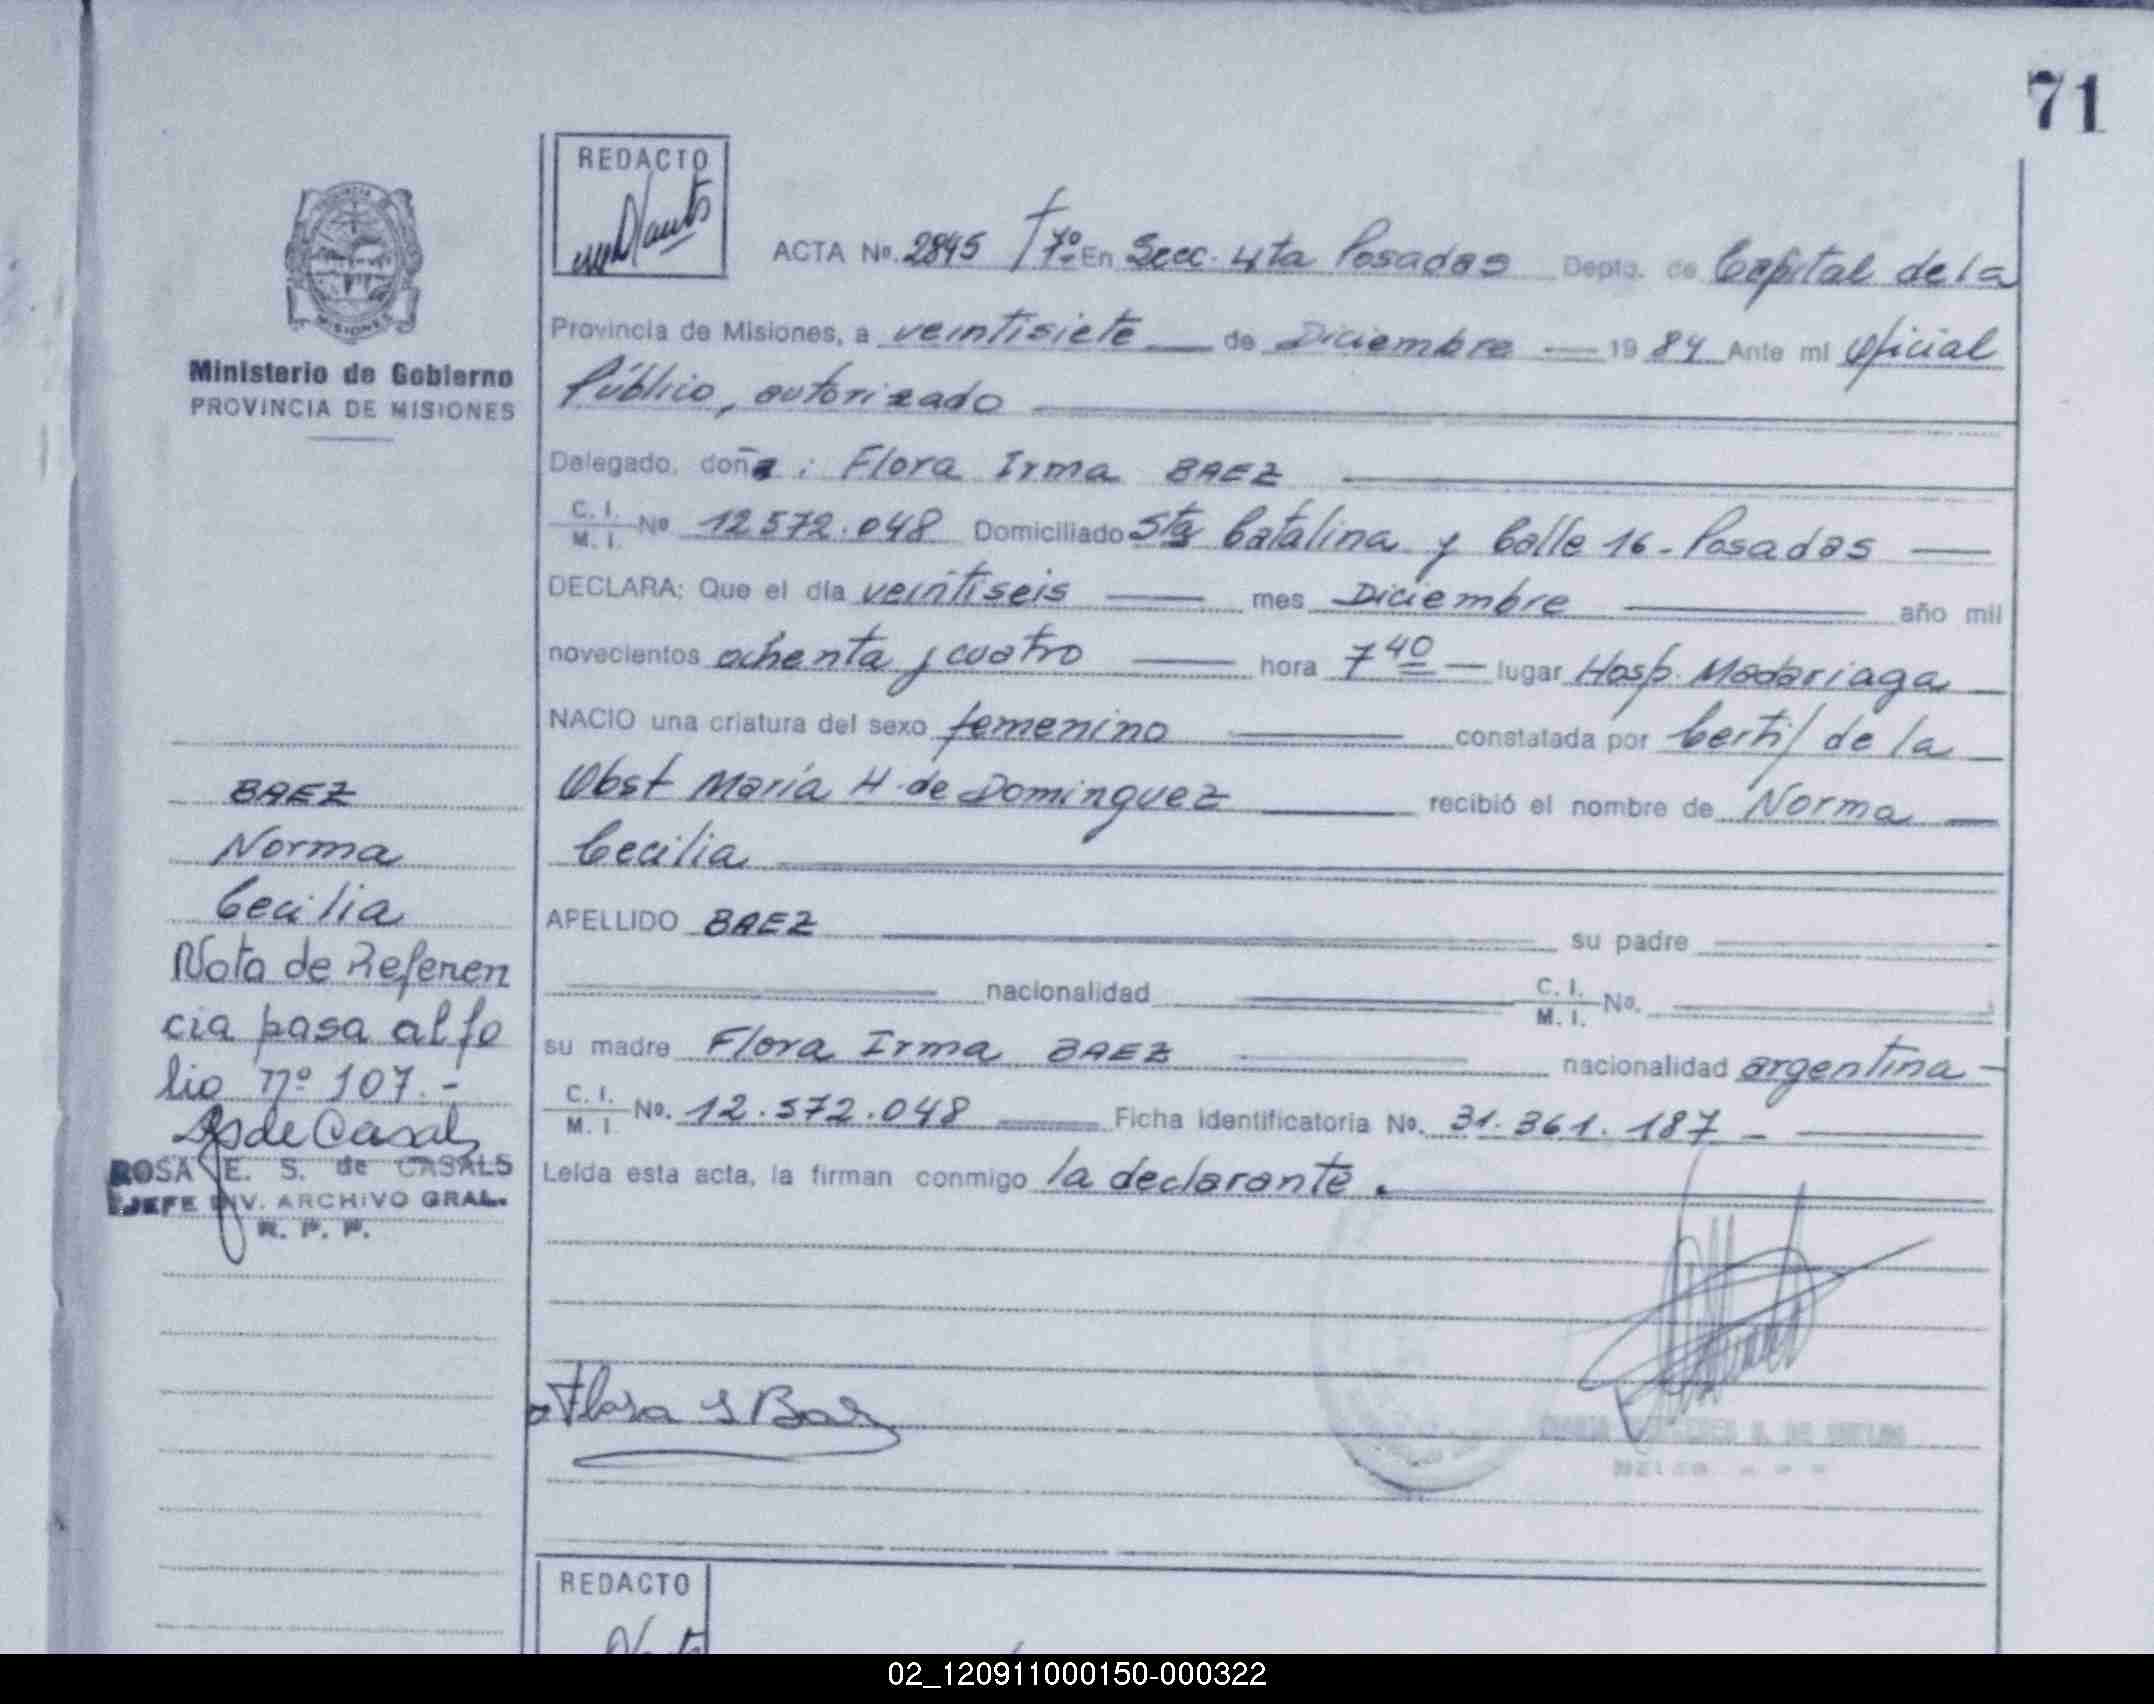 71
REDACTO
ACTA No. 2845 Tº 7º En Secc. 4ta Posadas Depto. de Capital de la
Provincia de Misiones, a veintisiete de Diciembre 1984 Ante mi Oficial
Público, autorizado
Delegado, doña: Flora Irma BAEZ
C. I. M. I. No 12572.048 Domiciliado Sta Catalina y Calle 16 - Posadas
DECLARA; Que el día veintiseis mes Diciembre año mil
novecientos ochenta y cuatro hora 7 40 lugar Hosp. Madariaga
NACIO una criatura del sexo femenino constatada por Certif de la
Obst María H. de Dominguez recibió el nombre de Norma
Cecilia
APELLIDO BAEZ su padre
nacionalidad C. I. M. I. No.
su madre Flora Irma BAEZ nacionalidad argentina -
C. I. M. I. No. 12.572.048 Ficha identificatoria No. 31.361.187 -
Leída esta acta, la firman conmigo la declarante.
Flora I Baez
PROVINCIA DE
MISIONES
Ministerio de Gobierno
PROVINCIA DE MISIONES
BAEZ
Norma
Cecilia
Nota de Referen
cia pasa al fo
lio nº 107.-
ROSA E. S. de CASALS
JEFE DIV. ARCHIVO GRAL.
R. P. P.
REDACTO
02_120911000150-000322